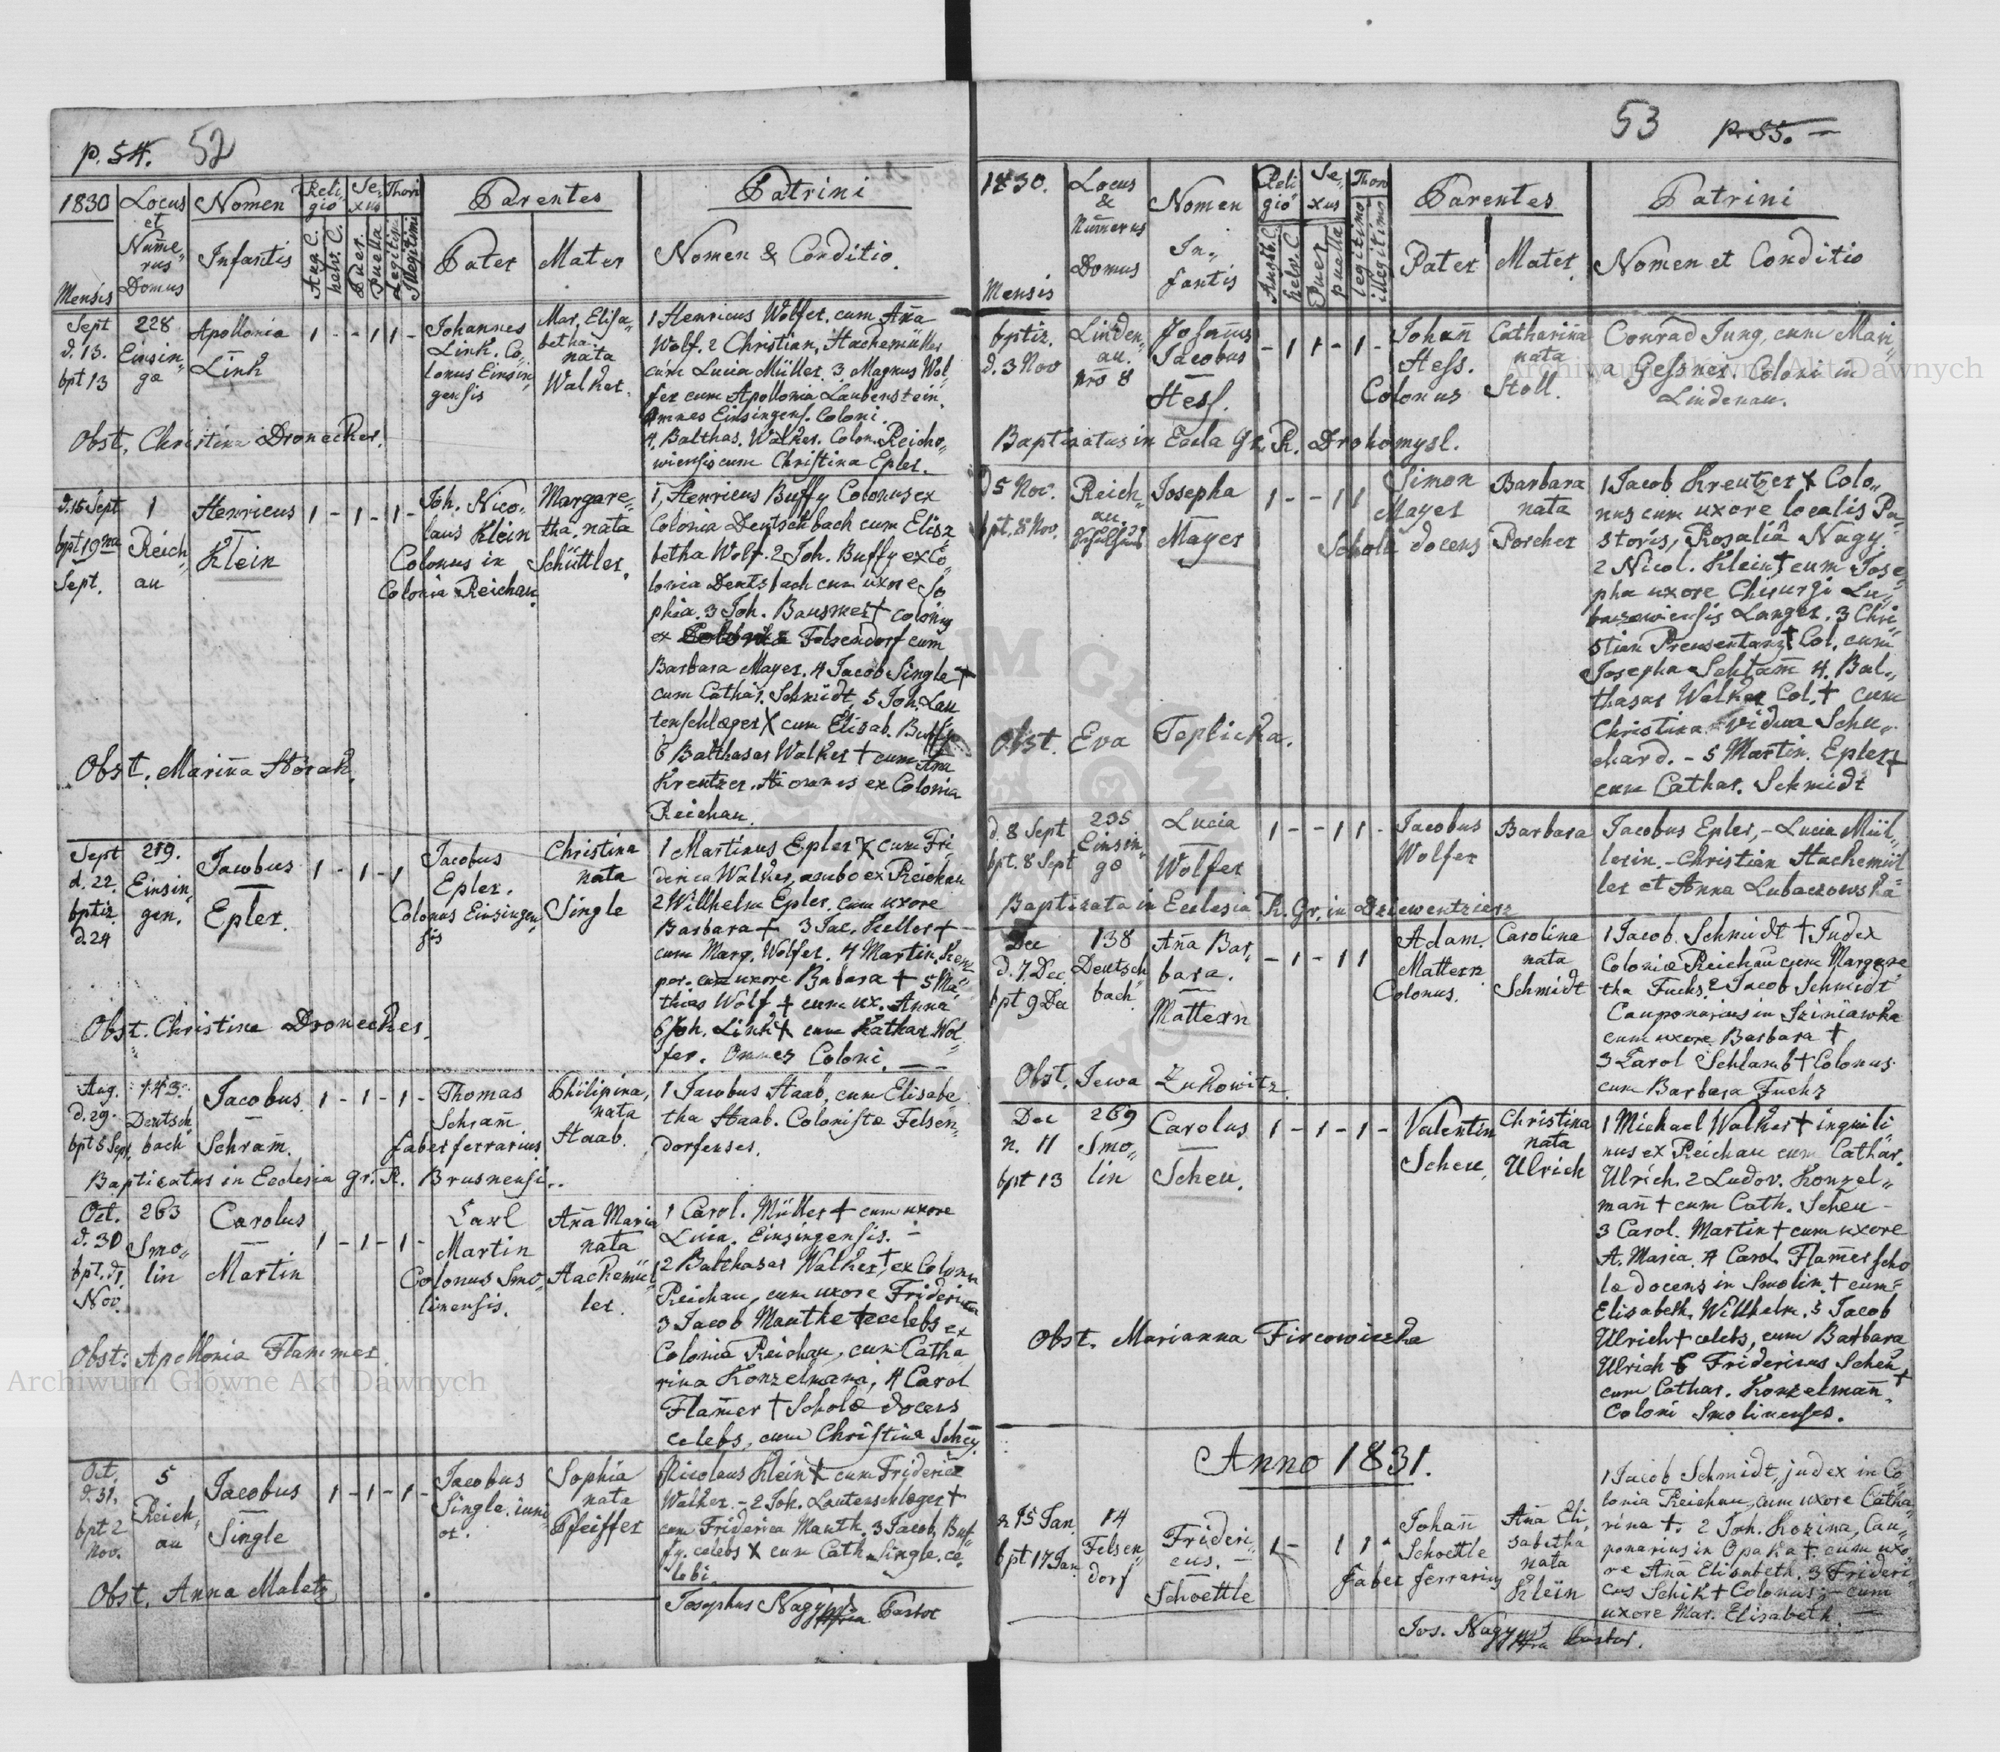 p. 54. 52
1830
Locus et Numerus Domus
Nomen Infantis
Religio
Sexus
Thori
Parentes
Patrini
Mensis
Aug. C.
helv. C.
Puer.
Puella
Legitimi
Illegitimi
Pater
Mater
Nomen & Conditio.
Sept
d. 13.
bpt 13
228
Einsin„
ga
Apollonia
Link
1 - - 1 1 -
Johannes
Link. Co„
lonus Einsin„
gensis
Mar. Elisa„
betha
nata
Walker.
1 Henricus Wolfer, cum Ana
Wolf. 2 Christian, Hachemüller
cum Lucia Müller. 3 Magnus Wol„
fer cum Apollonia Laubenstein.
Omnes Einsingens. Coloni.
4. Balthas. Walker. Colon. Reicho„
wiensis cum Christina Epler.
Obst. Christina Dronecker.
d. 15 Sept
bpt 19ma
Sept.
1
Reich„
au
Henricus
Klein
1 - 1 - 1 -
Joh. Nico„
laus Klein
Colonus in
Colonia Reichau.
Margare„
tha, nata
Schüttler.
1, Henricus Buffy Colonus ex
Colonia Deutschbach cum Elisa
betha Wolf. 2 Joh. Buffy ex Co„
lonia Deutsbach cum uxore So
phia. 3 Joh. Bausmer † colonus
ex Felsendorf cum
Barbara Mayer. 4 Jacob Single †
cum Cathar. Schmidt, 5 Joh. Lau
tenschlæger X cum Elisab. Buffy
6 Balthasar Walker † cum Ana
Kreutzer. Hi omnes ex Colonia
Reichau.
Obst. Marina Horak.
Sept
d. 22.
bptiz.
d. 24
219.
Einsin„
gen.
Jacobus
Epler.
1 - 1 - 1
Jacobus
Epler.
Colonus Einsingen„
sis
Christina
nata
Single
1 Martinus Epler X cum Fri„
derica Walker, ambo ex Reichau
2 Willhelm Epler. cum uxore
Barbara † 3 Jac. Keller †
cum Marg. Wolfer. 4 Martin. Kem„
per. cum uxore Babara † 5 Ma„
thias Wolf † cum ux. Anna
6 Joh. Link † cum Kathar. Wol„
fer. Omnes Coloni.
Obst. Christine Dronecker.
Aug.
d. 29.
bpt 5 Sept.
143.
Deutsch
bach
Jacobus
Schram.
1 - 1 - 1 -
Thomas
Schram.
faber ferrarius.
Philipina,
nata
Staab.
1 Jacobus Staab, cum Elisabe
tha Staab. Colonistæ Felsen„
dorfenses.
Baptizatus in Ecclesia gr. R. Brusnensi..
Oct.
d. 30
bpt. d 1
Nov.
263
Smo„
lin
Carolus
Martin
1 - 1 - 1 -
Carl
Martin
Colonus Smo„
linensis.
Ana Maria
nata
Hachemül„
ler.
1 Carol. Müller † cum uxore
Lucia, Einsingensis. -
2 Balthasar Walker, † ex Colonia
Reichau, cum uxore Friderica
3 Jacob Manthe † celebs ex
Colonia Reichau, cum Catha„
rina Konzelmana, 4 Carol
Flamer † Scholæ docens
celebs, cum Christina Schey.
Obst: Apollonia Flammer.
Oct.
d. 31.
bpt 2
Nov.
5
Reich„
au
Jacobus
Single
1 - 1 - 1 -
Jacobus
Single. iuni„
or.
Sophia
nata
Pfeiffer
Nicolaus Klein † cum Friderica
Walker. - 2 Joh. Lautenschlæger †
cum Friderica Manth. 3 Jacob, Buf„
fy. celebs X cum Cath. Single. ce„
lebi.
Obst. Anna Maletz
Josephus Nagy mp
Pastor
53 p. 55.
1830.
Locus & Numerus Domus
Nomen Infantis
Religio
Sexus
Thori
Parentes
Patrini
Mensis
Augsb. C.
helv. C.
Puer
puella
legitimo
illegitimo
Pater
Mater.
Nomen et Conditio
bptiz.
d. 3 Nov
Linden„
au.
Nro 8
Johannes
Jacobus
Hess.
- 1 1 - 1 -
Johan
Hess.
Colonus
Catharina
nata
Stoll.
Conrad Jung, cum Mari„
a Gessner. Coloni in
Lindenau.
Baptizatus in Eccla Gr. R. Drohomysl.
d 5 Nov.
bpt. 8 Nov.
Reich„
au.
Josepha
Mayer
1 - - 1 1
Simon
Mayer
Schola docens
Barbara
nata
Porcher
1 Jacob Kreutzer X Colo„
nus cum uxore localis Pa„
storis, Rosalia Nagy.
2 Nicol. Klein † cum Jose„
pha uxore Chirurgi Lu„
baczowiensis Langer. 3 Chri„
stian Preusentanz † Col. cum
Josepha Schlam 4. Bal„
thasar Walker Col. † cum
Christina vidua Schu„
chard. - 5 Martin. Epler †
cum Cathar. Schmidt
Obst. Eva Teplicka.
d. 8 Sept
bpt. 8 Sept
235
Einsin„
ga
Lucia
Wolfer
1 - - 1 1 -
Jacobus
Wolfer
Barbara
Jacobus Epler, - Lucia Mül„
lerin. - Christian Hachemül
ler et Anna Lubaczowska„
Baptizata in Ecclesia R. Gr. in Dziewentzierz
Dec
d. 7 Dec
bpt 9 Dec
138
Deutsch
bach
Ana Bar„
bara.
Mattern
- 1 - 1 1
Adam.
Mattern
Colonus.
Carolina
nata
Schmidt
1 Jacob. Schmidt † Judex
Coloniæ Reichau cum Margare„
tha Fuchs. 2 Jacob Schmidt
Cauponarius in Siniawka
cum uxore Barbara †
3 Carol Schlamb † Colonus.
cum Barbara Fuchs
Obst. Jewa Zukowitz.
Dec
n. 11
bpt 13
269
Smo„
lin
Carolus
Scheu.
1 - 1 - 1 -
Valentin
Scheu,
Christina
nata
Ulrich
1 Michael Walker † inquili„
nus ex Reichau cum Cathar.
Ulrich. 2 Ludov. Konzel„
man † cum Cath. Scheu -
3 Carol. Martin † cum uxore
A. Maria. 4 Carol. Flamer scho
læ docens in Smolin † cum
Elisabeth. Willhelm. 5 Jacob
Ulrich † celebs, cum Barbara
Ulrich 6 Fridericus Scheu †
cum Cathar. Konzelman
Coloni Smolinenses.
Obst. Marianna Fircowiczka
Anno 1831.
n 15 Jan.
bpt 17 Jan
14
Felsen„
dorf
Frideri„
cus. -
Schoettle
1 - 1 1 -
Johan
Schoettle
faber ferrarius
Ana Eli„
sabetha
nata
Klein
1 Jacob Schmidt, judex in Co„
lonia Reichau, cum uxore Catha„
rina †. 2 Joh. Kozina, Cau„
ponarius in Opaka † cum uxo„
re Ana Elisabeth. 3 Frideri„
cus Schik † Colonus, - cum
uxore Mar. Elisabeth. -
Jos. Nagy mp
Pastor.
Archiwum Główne Akt Dawnych
Archiwum Główne Akt Dawnych